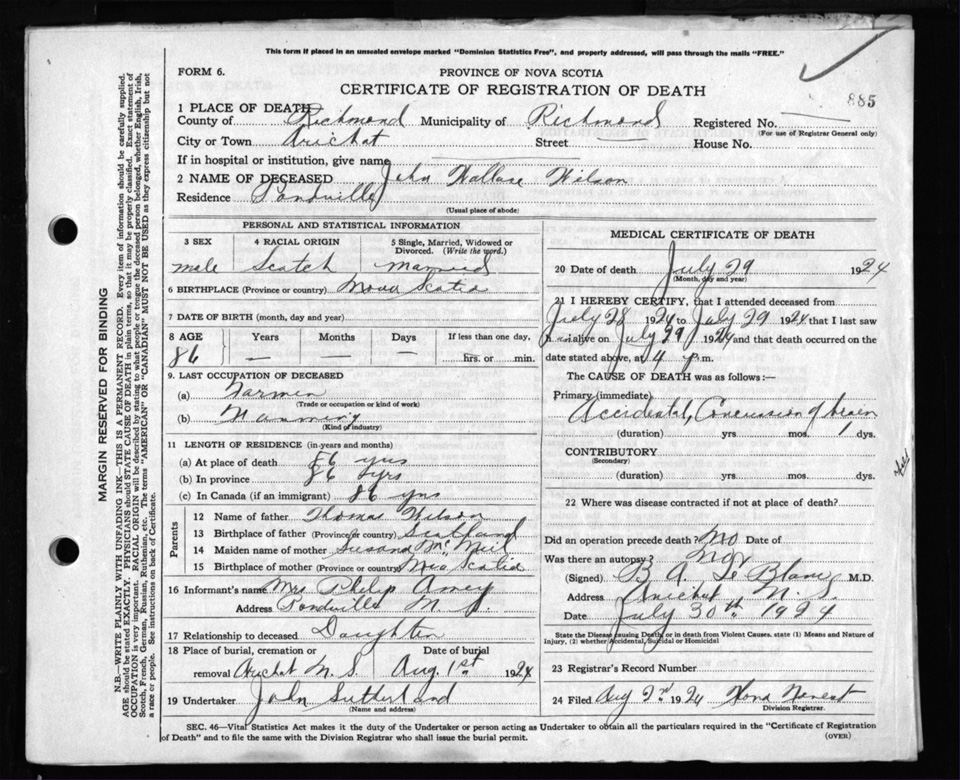 This form if placed in an unsealed envelope marked "Dominion Statistics Free", and properly addressed, will pass through the mails "FREE."
FORM 6.
PROVINCE OF NOVA SCOTIA
CERTIFICATE OF REGISTRATION OF DEATH
885
1 PLACE OF DEATH
County of Richmond Municipality of Richmond Registered No.
(For use of Registrar General only)
City or Town Arichat Street House No.
If in hospital or institution, give name
2 NAME OF DECEASED John Wallace Wilson
Residence Pondville
(Usual place of abode)
PERSONAL AND STATISTICAL INFORMATION
3 SEX 4 RACIAL ORIGIN 5 Single, Married, Widowed or Divorced. (Write the word.)
male Scotch married
6 BIRTHPLACE (Province or country) Nova Scotia
7 DATE OF BIRTH (month, day and year)
8 AGE Years Months Days If less than one day.
86 — — — hrs. or min.
9. LAST OCCUPATION OF DECEASED
(a) Farmer
(Trade or occupation or kind of work)
(b) Farming
(Kind of industry)
11 LENGTH OF RESIDENCE (in years and months)
(a) At place of death 56 yrs
(b) In province 86 yrs
(c) In Canada (if an immigrant) 86 yrs
Parents
12 Name of father Thomas Wilson
13 Birthplace of father (Province or country) Scotland
14 Maiden name of mother Susana McNeil
15 Birthplace of mother (Province or country) Nova Scotia
16 Informant's name Mrs Philip
Address Pondville N. S.
17 Relationship to deceased Daughter
18 Place of burial, cremation or removal Date of burial
Arichat N. S. Aug. 1st 1924
19 Undertaker John Sutherland
(Name and address)
MEDICAL CERTIFICATE OF DEATH
20 Date of death July 29 1924
(Month, day and year)
21 I HEREBY CERTIFY, that I attended deceased from
July 28 1924 to July 29 1924 that I last saw
h alive on July 29 1924 and that death occurred on the
date stated above, at 4 p.m.
The CAUSE OF DEATH was as follows :—
Primary (immediate)
Accidental, Concussion of brain
(duration) yrs. mos. 1 dys.
CONTRIBUTORY
(Secondary)
(duration) yrs. mos. dys.
22 Where was disease contracted if not at place of death?
Did an operation precede death? No Date of
Was there an autopsy? No
(Signed) B. A. Le Blanc M.D.
Address Arichat N. S.
Date July 30th 1924
State the Disease causing Death, or in death from Violent Causes, state (1) Means and Nature of
Injury, (2) whether Accidental, Suicidal or Homicidal
23 Registrar's Record Number
24 Filed Aug 2nd 1924
Division Registrar.
SEC. 46—Vital Statistics Act makes it the duty of the Undertaker or person acting as Undertaker to obtain all the particulars required in the "Certificate of Registration
of Death" and to file the same with the Division Registrar who shall issue the burial permit.
(OVER)
MARGIN RESERVED FOR BINDING
N.B.—WRITE PLAINLY WITH UNFADING INK—THIS IS A PERMANENT RECORD. Every item of information should be carefully supplied.
AGE should be stated EXACTLY. PHYSICIANS should STATE CAUSE OF DEATH in plain terms, so that it may be properly classified. Exact statement of
OCCUPATION is very important. RACIAL ORIGIN will be described by stating to what people or tongue the deceased person belonged, whether English, Irish,
Scotch, French, German, Russian, Ruthenian, etc. The terms "AMERICAN" or "CANADIAN" MUST NOT BE USED as they express citizenship but not
a race or people. See instructions on back of Certificate.